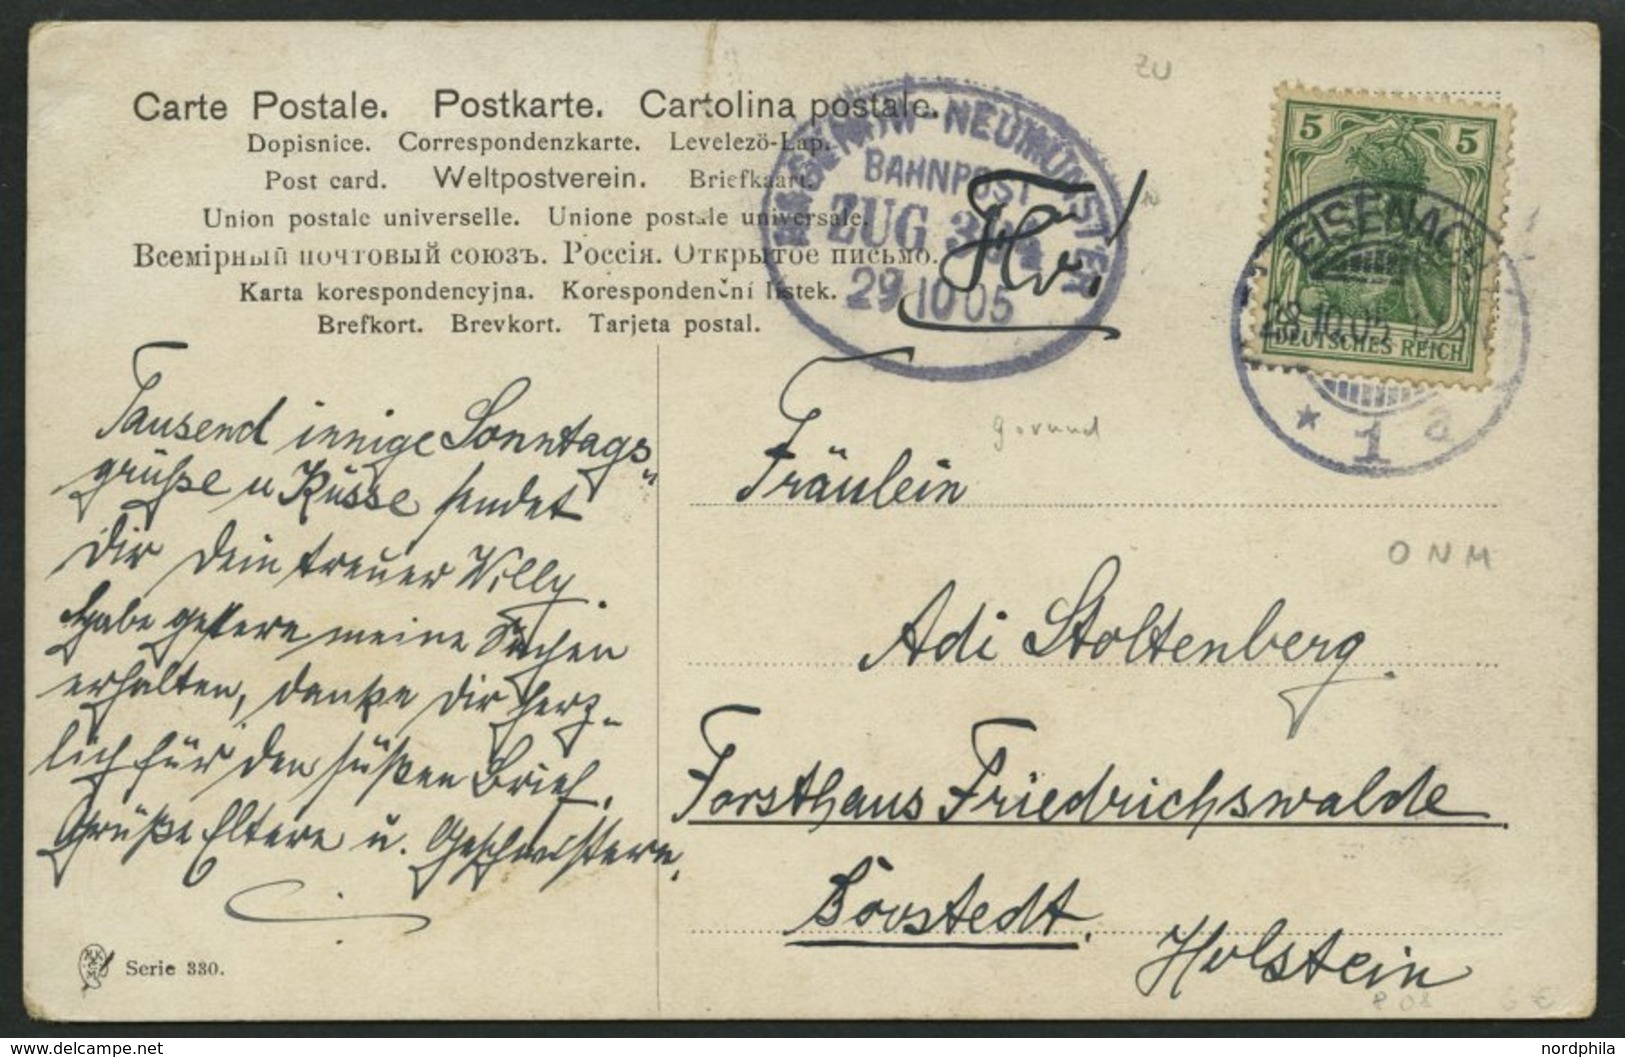 Carte Postale. Postkarte. Cartolina postale.
Dopisnice. Correspondenzkarte. Levelezö-Lap.
Post card. Weltpostverein. Briefkaart.
Union postale universelle. Unione postale universale.
Всемірный почтовый союзъ. Россія. Открытое письмо.
Karta korespondencyjna. Korespondenční lístek.
Brefkort. Brevkort. Tarjeta postal.
HAGENOW-NEUMÜNSTER
BAHNPOST
ZUG
29 10 05
ZU
5 5
DEUTSCHES REICH
EISENACH
28.10.05
* 1 a
Tausend innige Sonntags-
grüße u Küsse sendet
Dir Dein treuer Willy.
Habe gestern meine Sachen
erhalten, danke Dir herz-
lich für den süßen Brief.
Grüße Eltern u. Geschwistern.
Fräulein
O N M
Adi Stoltenberg.
Forsthaus Friedrichswalde
Borstedt.
Holstein
Serie 330.
6 €
www.delcampe.net
nordphila